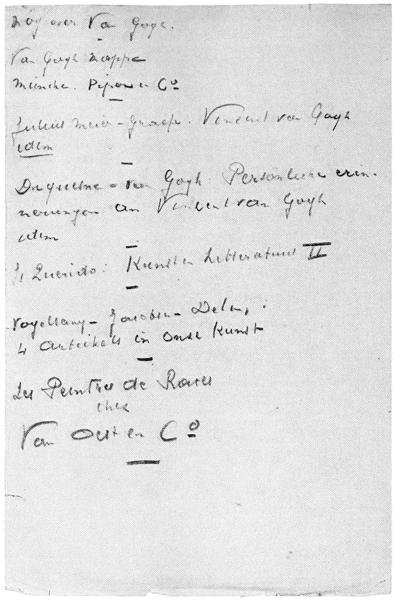 nog over Van Gogh.
Van Gogh mappe
München. Piper en Co
Julius Meier-Graefe. Vincent van Gogh
idem
Duquesne-van Gogh. Persönliche erin-
nerungen an Vincent van Gogh
idem
Is Querido: Kunst en Litteratuur II
Vogelsang - Jacobsen - Delen,
4 artikels in Onze Kunst
Les Peintres de Races
chez
Van Oest en Co